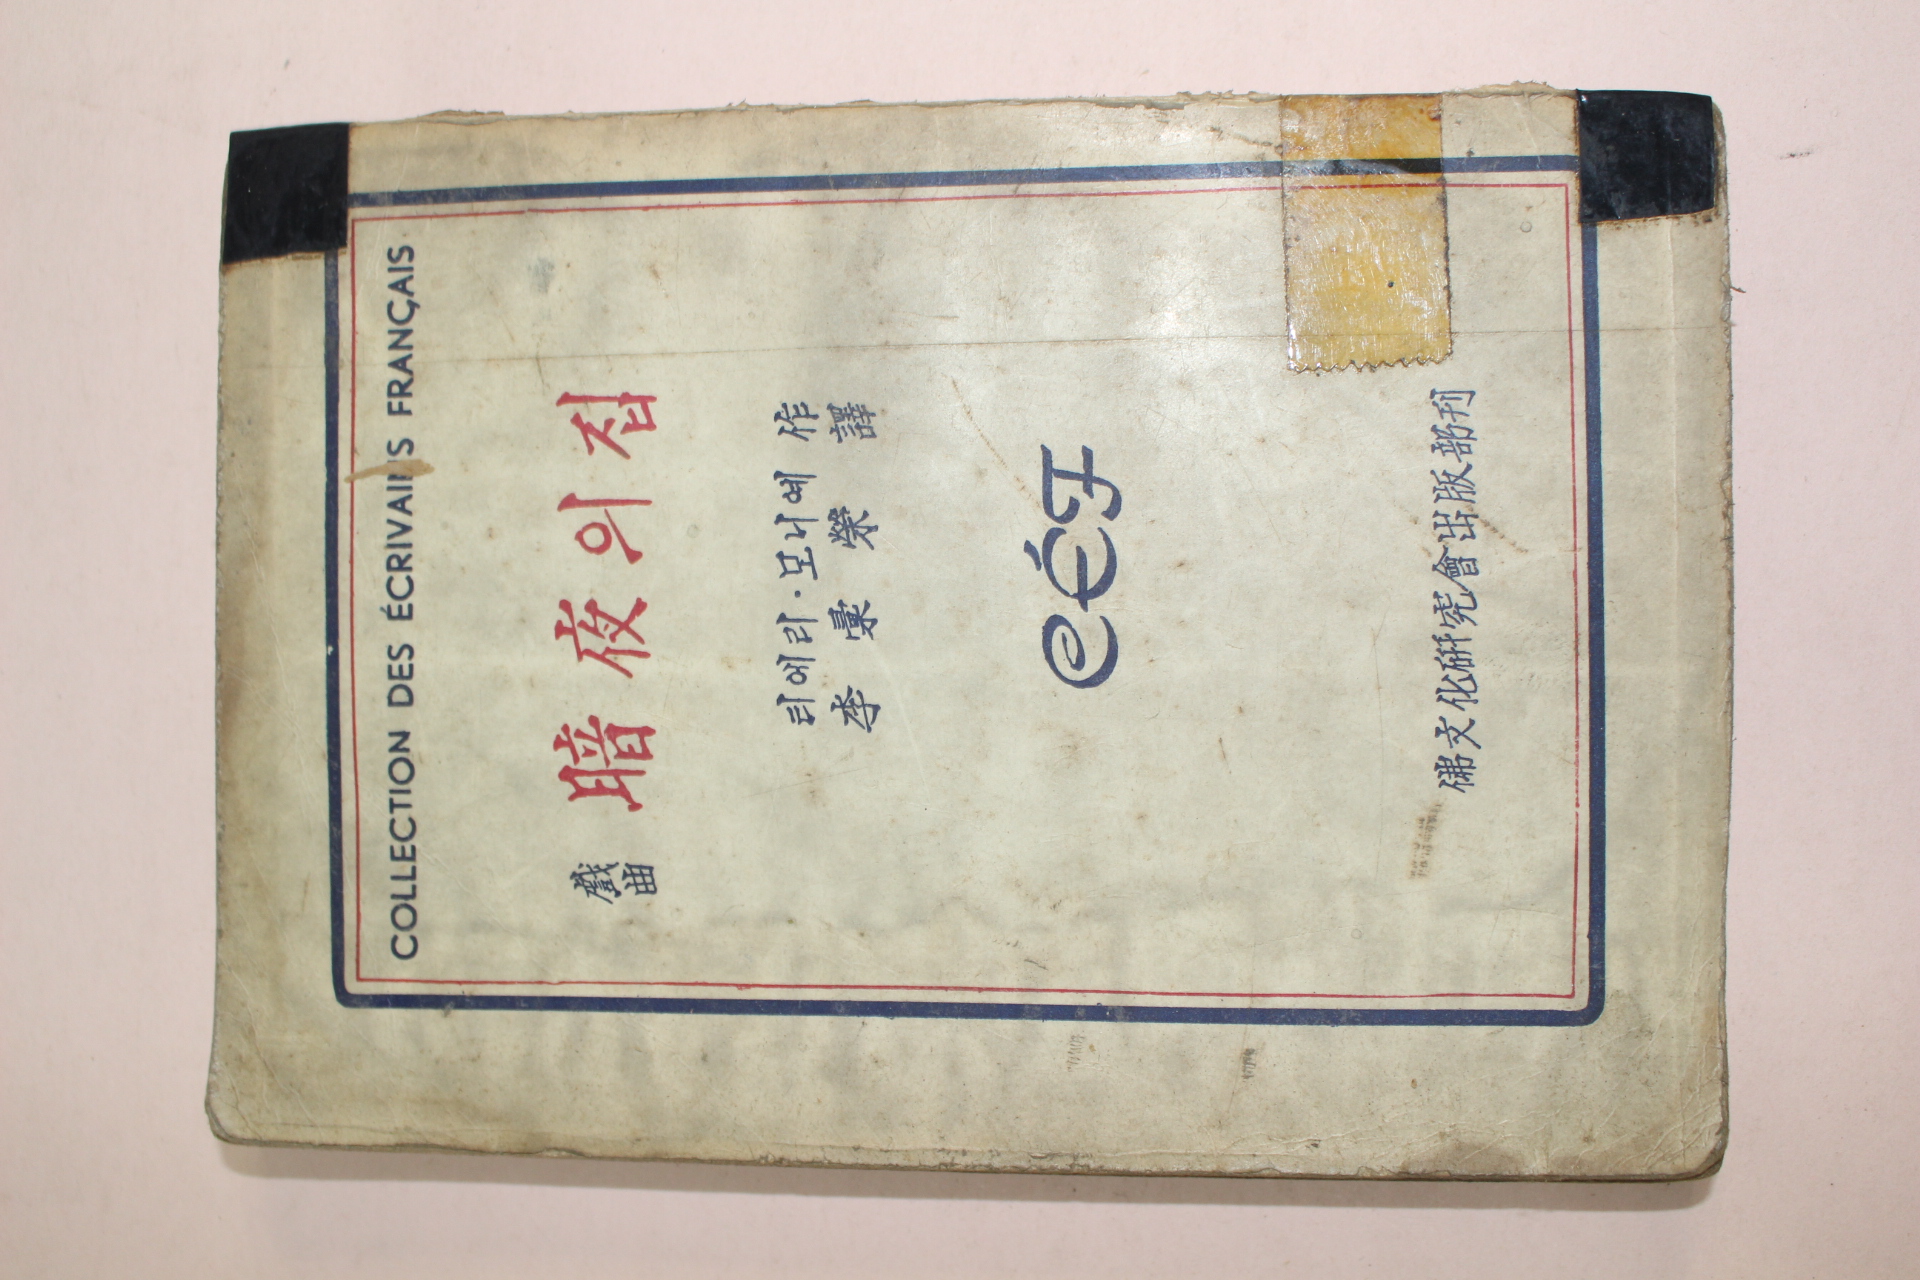 COLLECTION DES ÉCRIVAINS FRANÇAIS
戱曲 暗夜의 집
티에리·모니예 作
李彙榮 譯
CÉF
佛文化硏究會出版部刊